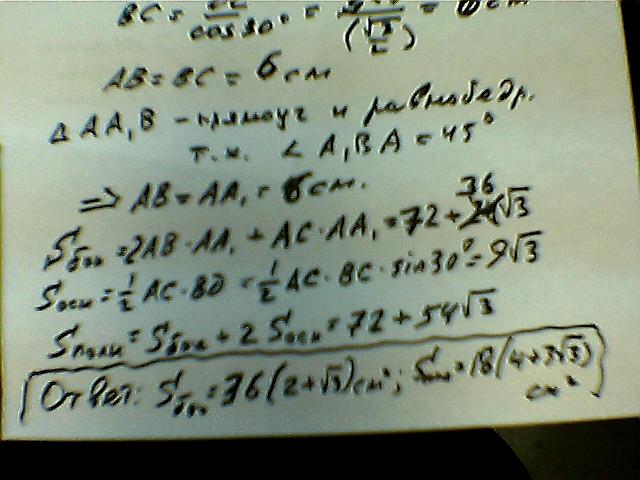 BC = / cos30° = / (√3/2) = 6 см
AB = BC = 6 см
Δ AA₁B - прямоуг и равнобедр.
т.к. ∠ A₁BA = 45°
⇒ AB = AA₁ = 6 см.
36
Sбок = 2AB · AA₁ + AC · AA₁ = 72 + √3
Sосн = 1/2 AC · BD = 1/2 AC · BC · sin30° = 9√3
Sполн = Sбок + 2 Sосн = 72 + 54√3
Ответ: Sбок = 36(2+√3) см²; Sполн = 18(4+3√3)
см²